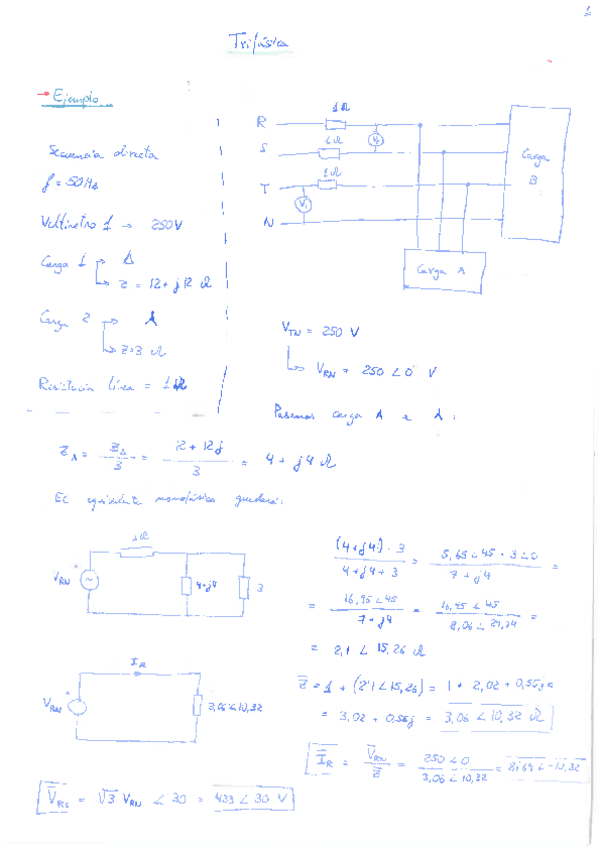 Trifásica
→ Ejemplo
Secuencia directa
f = 50 Hz
Voltímetro 1 → 250 V
Carga 1 → Δ
↳ z = 12 + j 12 Ω
Carga 2 → ⅄
↳ z = 3 Ω
Resistencia línea = 1 Ω
1 Ω
R
1 Ω
S
1 Ω
T
V1
N
Carga B
Carga A
V_TN = 250 V
↳ V_RN = 250 ∠0 V
Pasamos carga A a ⅄ :
Z⅄ = Z_Δ / 3 = (12 + 12j) / 3 = 4 + j4 Ω
El equivalente monofásico quedará:
1 Ω
V_RN
4+j4
3
((4+j4) · 3) / (4+j4+3) = (5,65 ∠45 · 3∠0) / (7+j4) =
= (16,95 ∠45) / (7+j4) = (16,95 ∠45) / (8,06 ∠29,74) =
= 2,1 ∠ 15,26 Ω
I_R
V_RN
3,06 ∠10,32
Z = 1 + (2'1 ∠15,26) = 1 + 2,02 + 0,55j =
= 3,02 + 0,55j = 3,06 ∠ 10,32 Ω
I_R = V_RN / Z = (250 ∠0) / (3,06 ∠10,32) = 81,69 ∠-10,32
V_RS = √3 V_RN ∠ 30 = 433 ∠ 30 V